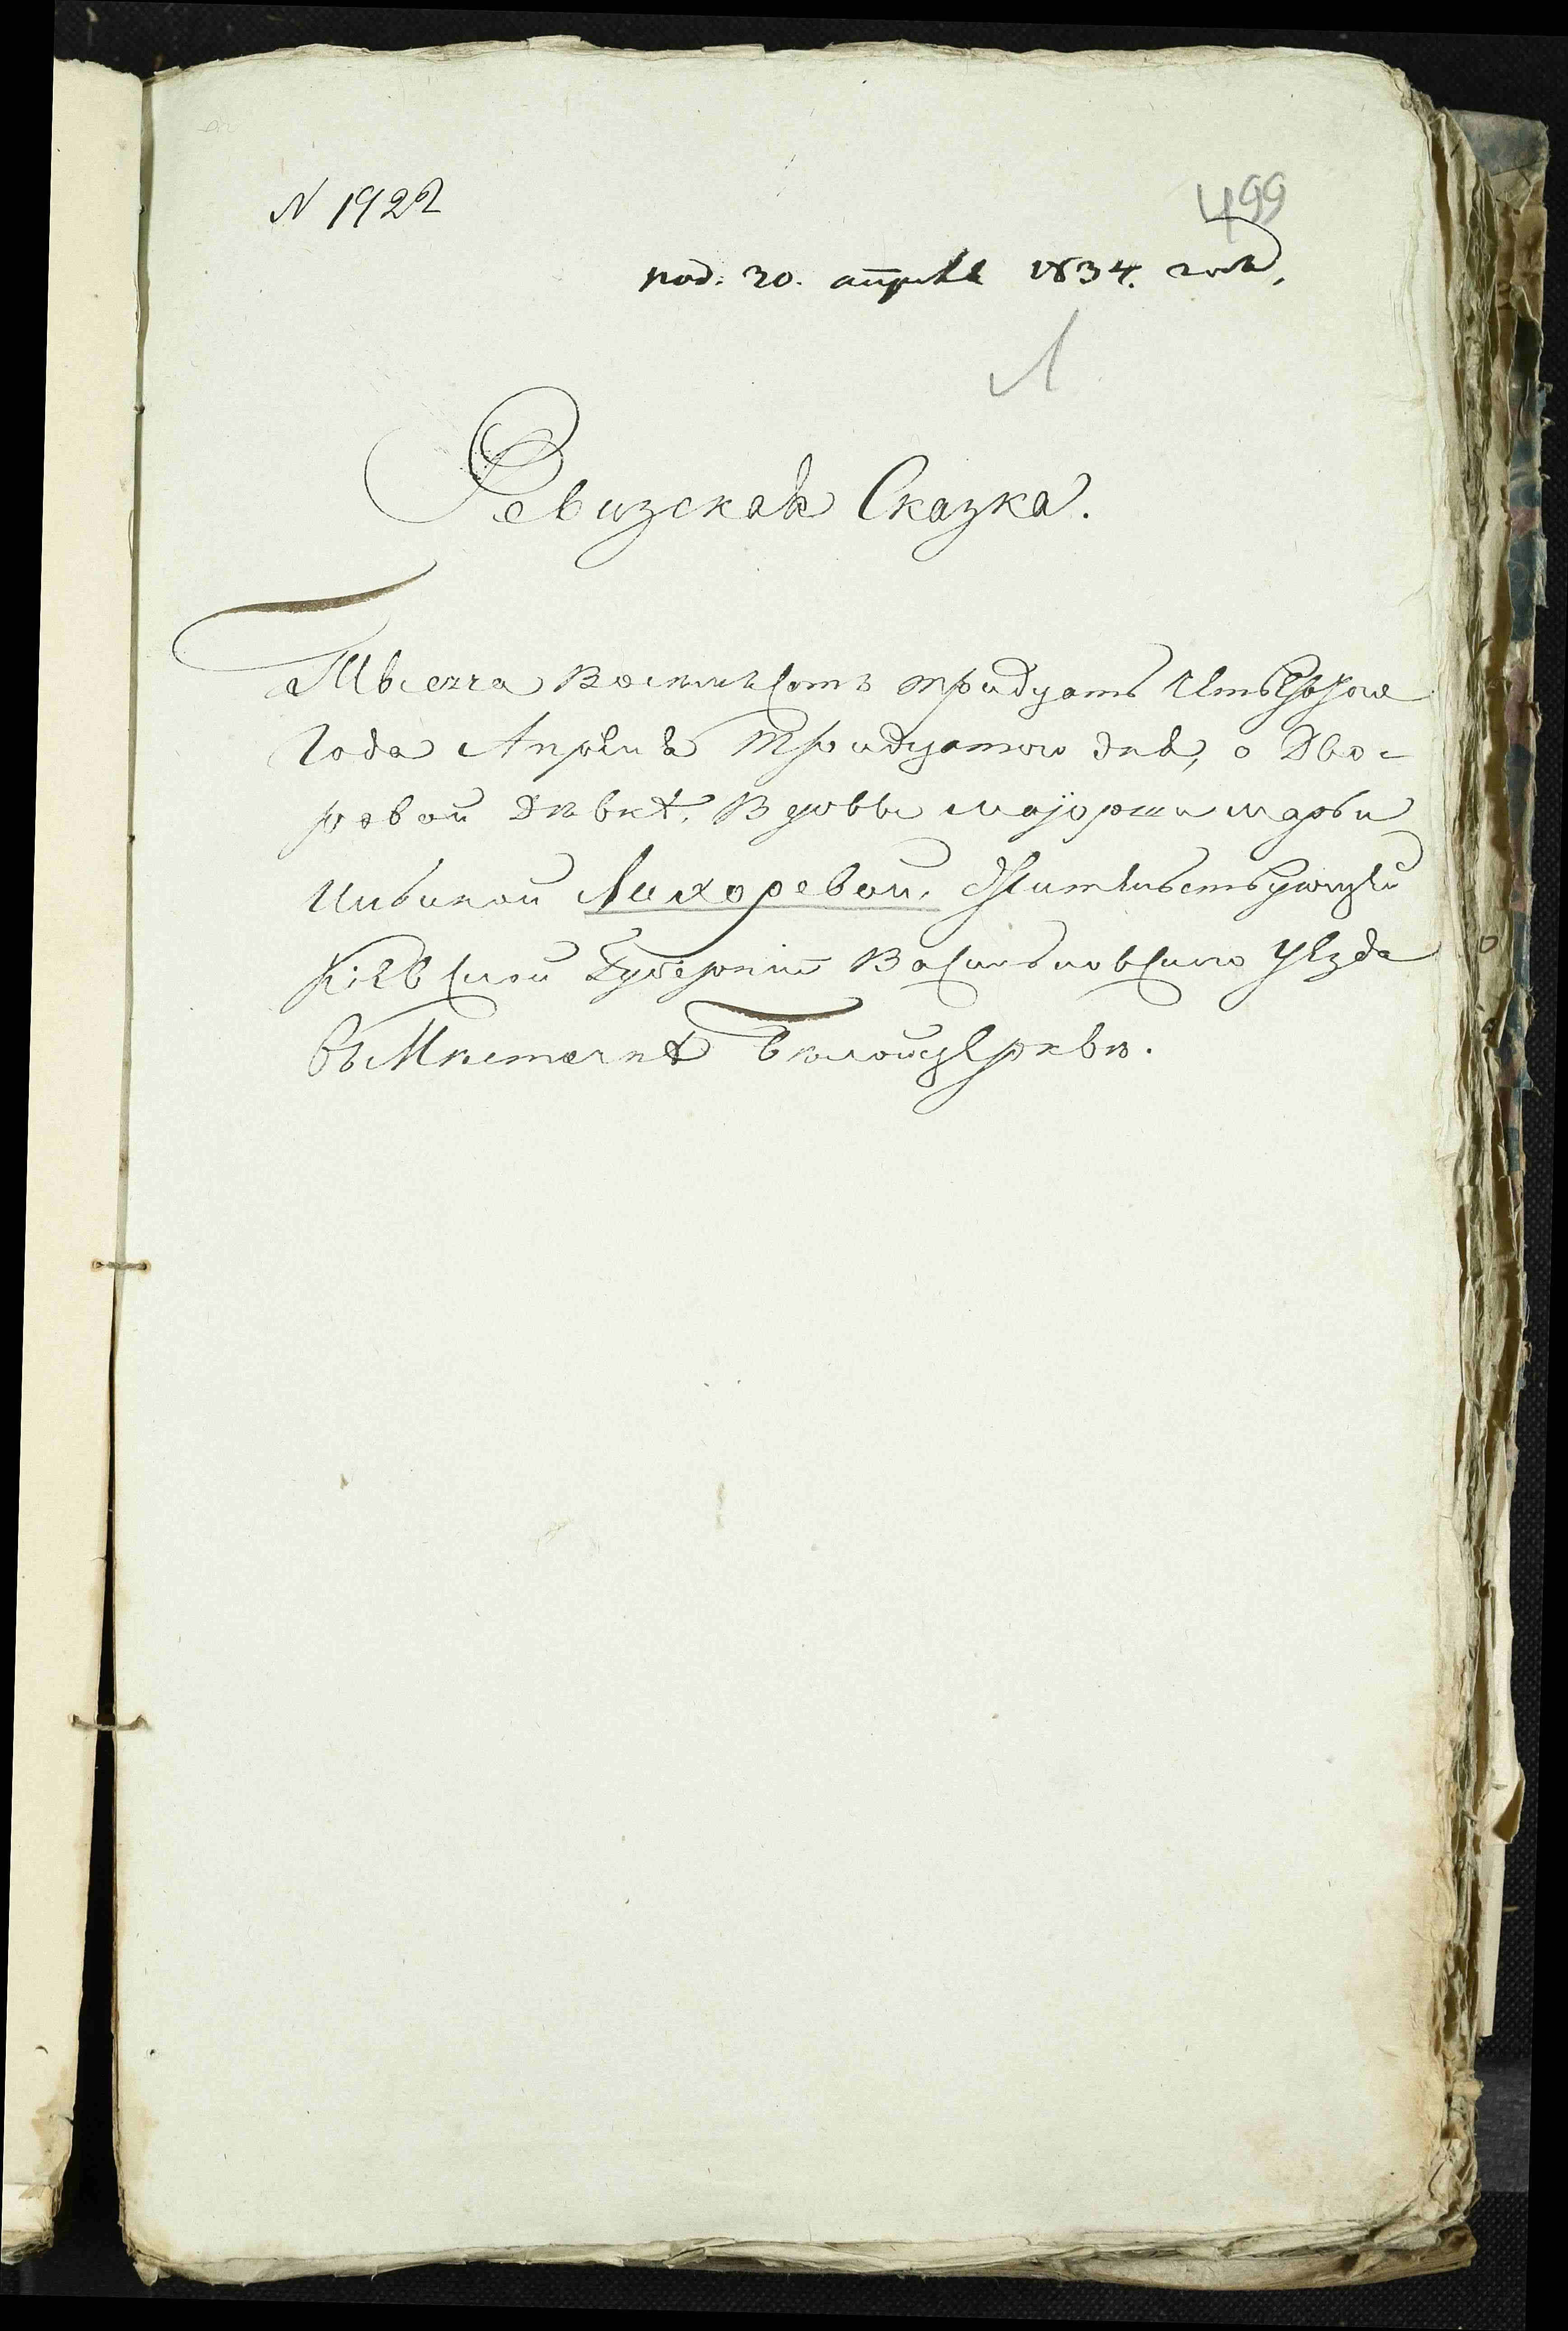 N 1922
499
под: 30. апреля 1834. года,
Л
Ревизская Сказка.
Тысеча Восемъсотъ тридцать Четвертого
Года Апреля Тридцатого дня, о Дво-
ровой Дѣвкѣ, Вдовы маіорши марьи
Лихоревой, Жительствующей
Кіевской Губерніи Васильковского Уезда
въ Мѣстечкѣ Бѣлойцерквѣ.